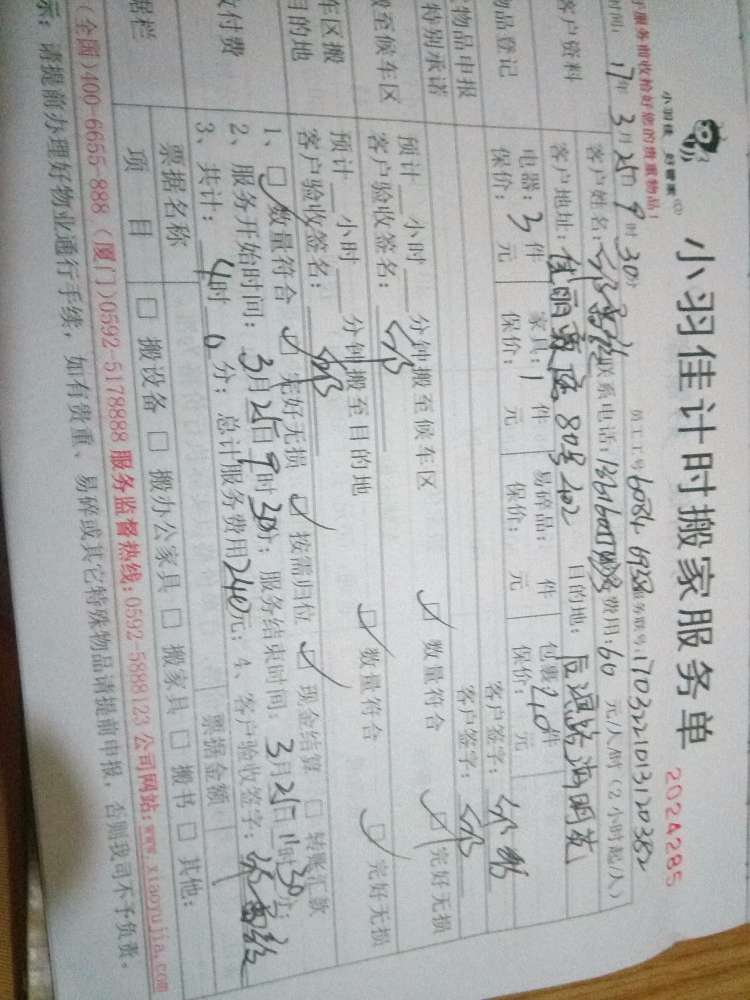 小羽佳计时搬家服务单
2024285
小羽佳 好管家
服务前收拾好您的贵重物品!
员工工号 6084 6958 服务联号: 1703221013120382
时间: 17年 3月 25日 9时 30分
客户资料
客户姓名: 联系电话: 费用: 60 元/人/时(2小时起/人)
客户地址: 佳丽 80号 202 目的地:
物品登记
电器: 3 件 家具: 1 件 易碎品: 件 包裹 20 件
保价: 元 保价: 元 保价: 元 保价: 元
物品申报 客户签字:
特别承诺 客户签字:
搬至候车区
预计 小时 分钟搬至候车区 数量符合 完好无损
客户验收签名:
车区搬
目的地
预计 小时 分钟搬至目的地 数量符合 完好无损
客户验收签名:
收付费
1、 数量符合 完好无损 按需归位 现金结算 转账汇款
2、服务开始时间: 3月25日9时30分; 服务结束时间: 3月25日11时30分;
3、共计: 4时 0分; 总计服务费用 240 元; 4、客户验收签字:
据栏
票据名称 票据金额
项目 搬设备 搬办公家具 搬家具 搬书 其他:
(全国)400-6655-888 (厦门)0592-5178888 服务监督热线: 0592-5888123 公司网站: www.xiaoyujia.com
示: 请提前办理好物业通行手续, 如有贵重、易碎或其它特殊物品请提前申报, 否则我司不予负责。